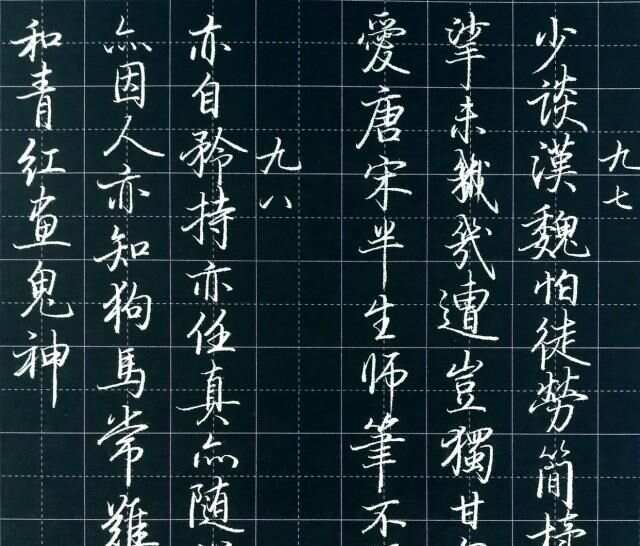 九七
少談漢魏怕徒勞簡
挲未幾遭豈獨甘
愛唐宋半生師筆不
九八
亦自矜持亦任真亦随
亦因人亦知狗馬常難
和青紅畫鬼神